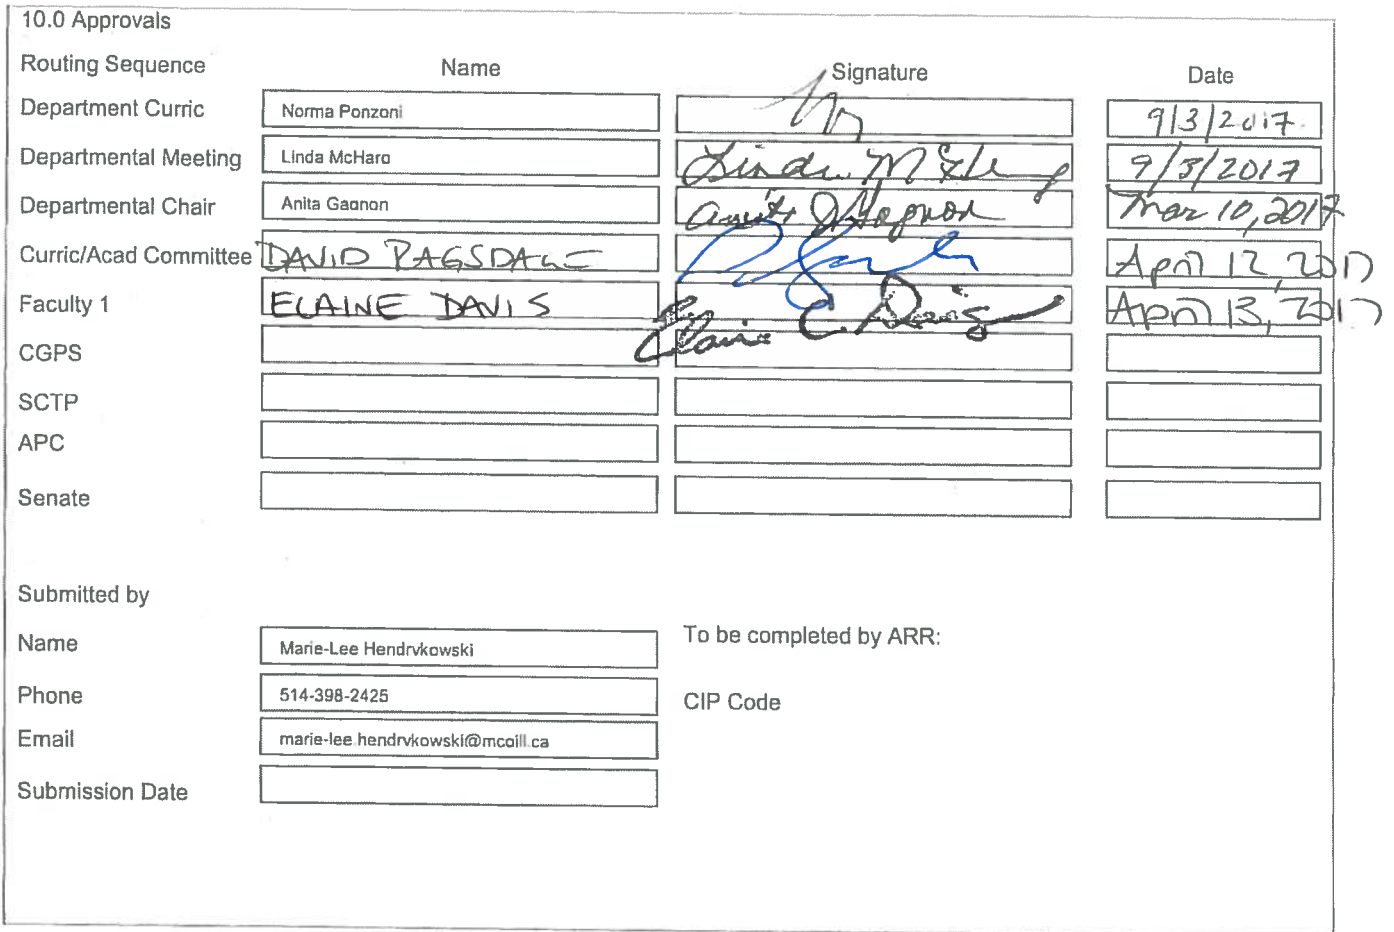 10.0 Approvals
Routing Sequence Name Signature Date
Department Curric Norma Ponzoni 9/3/2017
Departmental Meeting Linda McHarg Linda McHarg 9/3/2017
Departmental Chair Anita Gagnon Anita J Gagnon Mar 10, 2017
Curric/Acad Committee DAVID RAGSDALE April 12, 2017
Faculty 1 ELAINE DAVIS Elaine C. Davis April 13, 2017
CGPS
SCTP
APC
Senate
Submitted by
Name Marie-Lee Hendrykowski To be completed by ARR:
Phone 514-398-2425 CIP Code
Email marie-lee.hendrykowski@mcgill.ca
Submission Date